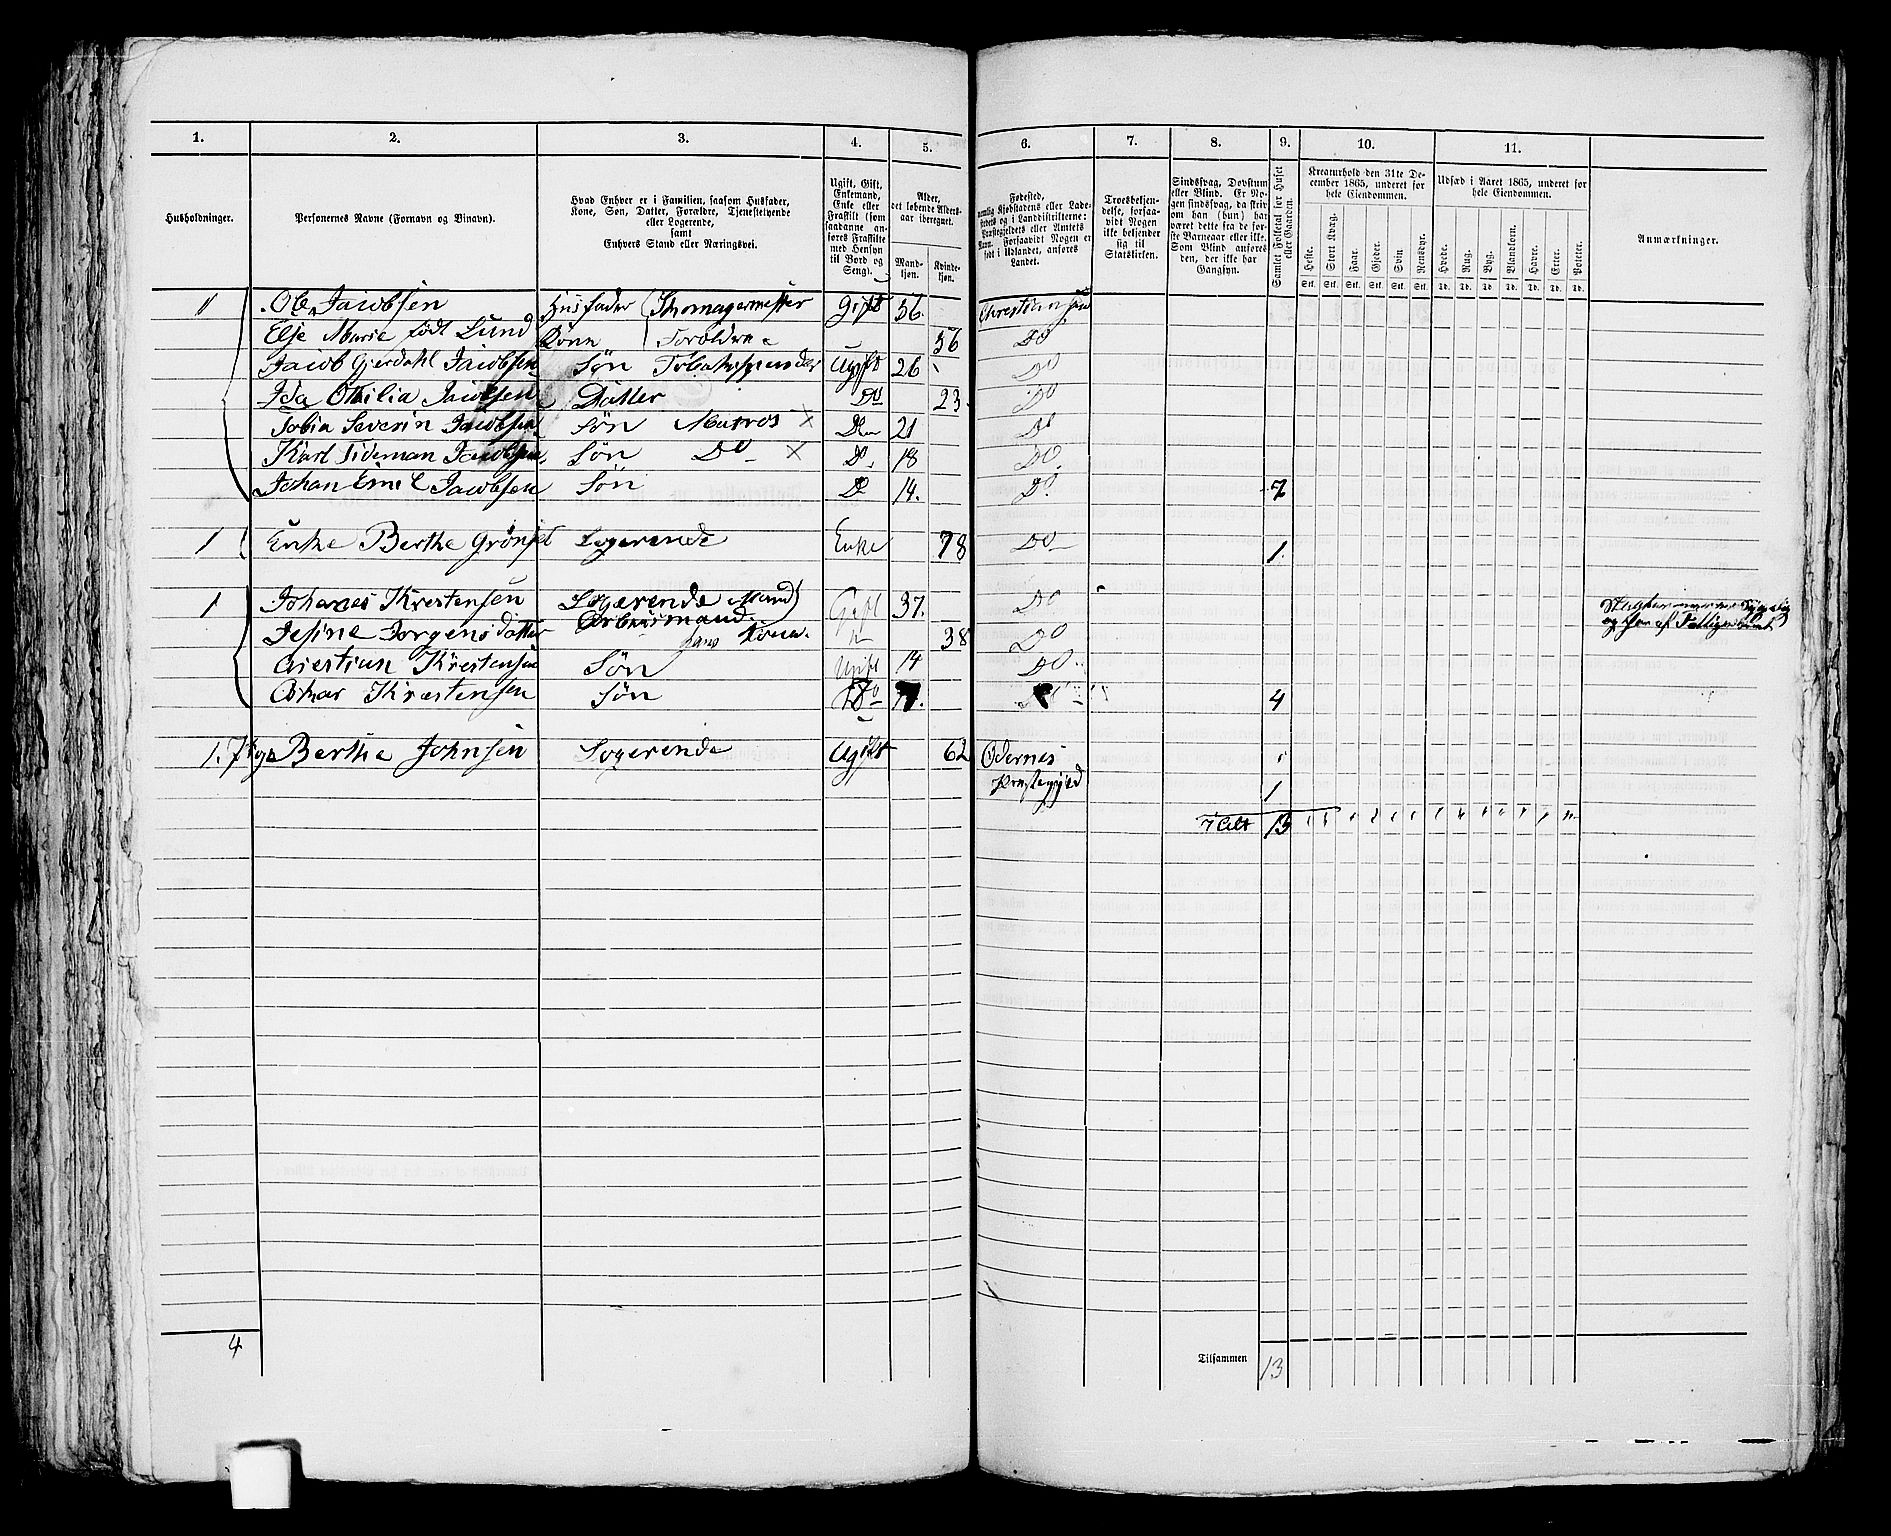 1. 2. 3. 4. 5. 6. 7. 8. 9. 10. 11.
Husholdninger.
Personernes Navne (Fornavn og Binavn).
Hvad Enhver er i Familien, saasom Husfader,
Kone, Søn, Datter, Forældre, Tjenestetyende
eller Logerende,
samt
Enhvers Stand eller Næringsvei.
Ugift, Gift,
Enkemand,
Enke eller
Fraskilt (som
saadanne anføres Fraskilte
med Hensyn
til Bord og
Seng).
Alder,
det løbende Aldersaar iberegnet.
Mandkjøn.
Kvindekjøn.
Fødested,
Troesbekjendelse, forsaavidt Nogen
ikke bekjender
sig til
Statskirken.
Sindssvag, Døvstum
eller Blind. Er Nogen sindssvag, da skrives om han (hun) har
været dette fra de første Barneaar eller ikke.
Som Blind anføres
den, der ikke har
Gangsyn.
Samlet Folketal for Huset
eller Gaarden.
Kreaturhold den 31te December 1865, underet for
hele Eiendommen.
Heste. Stort Kvæg. Faar. Gjeder. Svin Rensdyr.
Udsæd i Aaret 1865, underet for
hele Eiendommen.
Hvede. Rug. Byg. Blandkorn. Havre. Erter. Poteter.
Anmærkninger.
Ole Jacobsen Husfader Skomagermester Gift 56. Christiansand
Else Marie født Lund Kone Foreldrene 56 Do
Jacob Gjerdahl Jacobsen Søn Ugift 26 Do
Ida Othilia Jacobsen Datter Do 23 Do
Tobia Severin Jacobsen Søn Matros × Do 21 Do
Karl Tideman Jacobsen Søn Do × Do 18 Do
Johan Emil Jacobsen Søn Do 14. Do 7
1 Enke Berthe Logerende Enke 78 Do 1.
1 Johanes Krestensen Logerende Mand Gift 37. Do
Arbeidsmand.
Jesine Jorgensdatter hans Kone. 38 Do
Cristian Krestensen Søn Ugift 14 Do
Krestensen Søn Do 4
1. Pige Berthe Johnsen Logerende Ugift 62 Odernes
Præstegjeld 1
13
4
Tilsammen 13